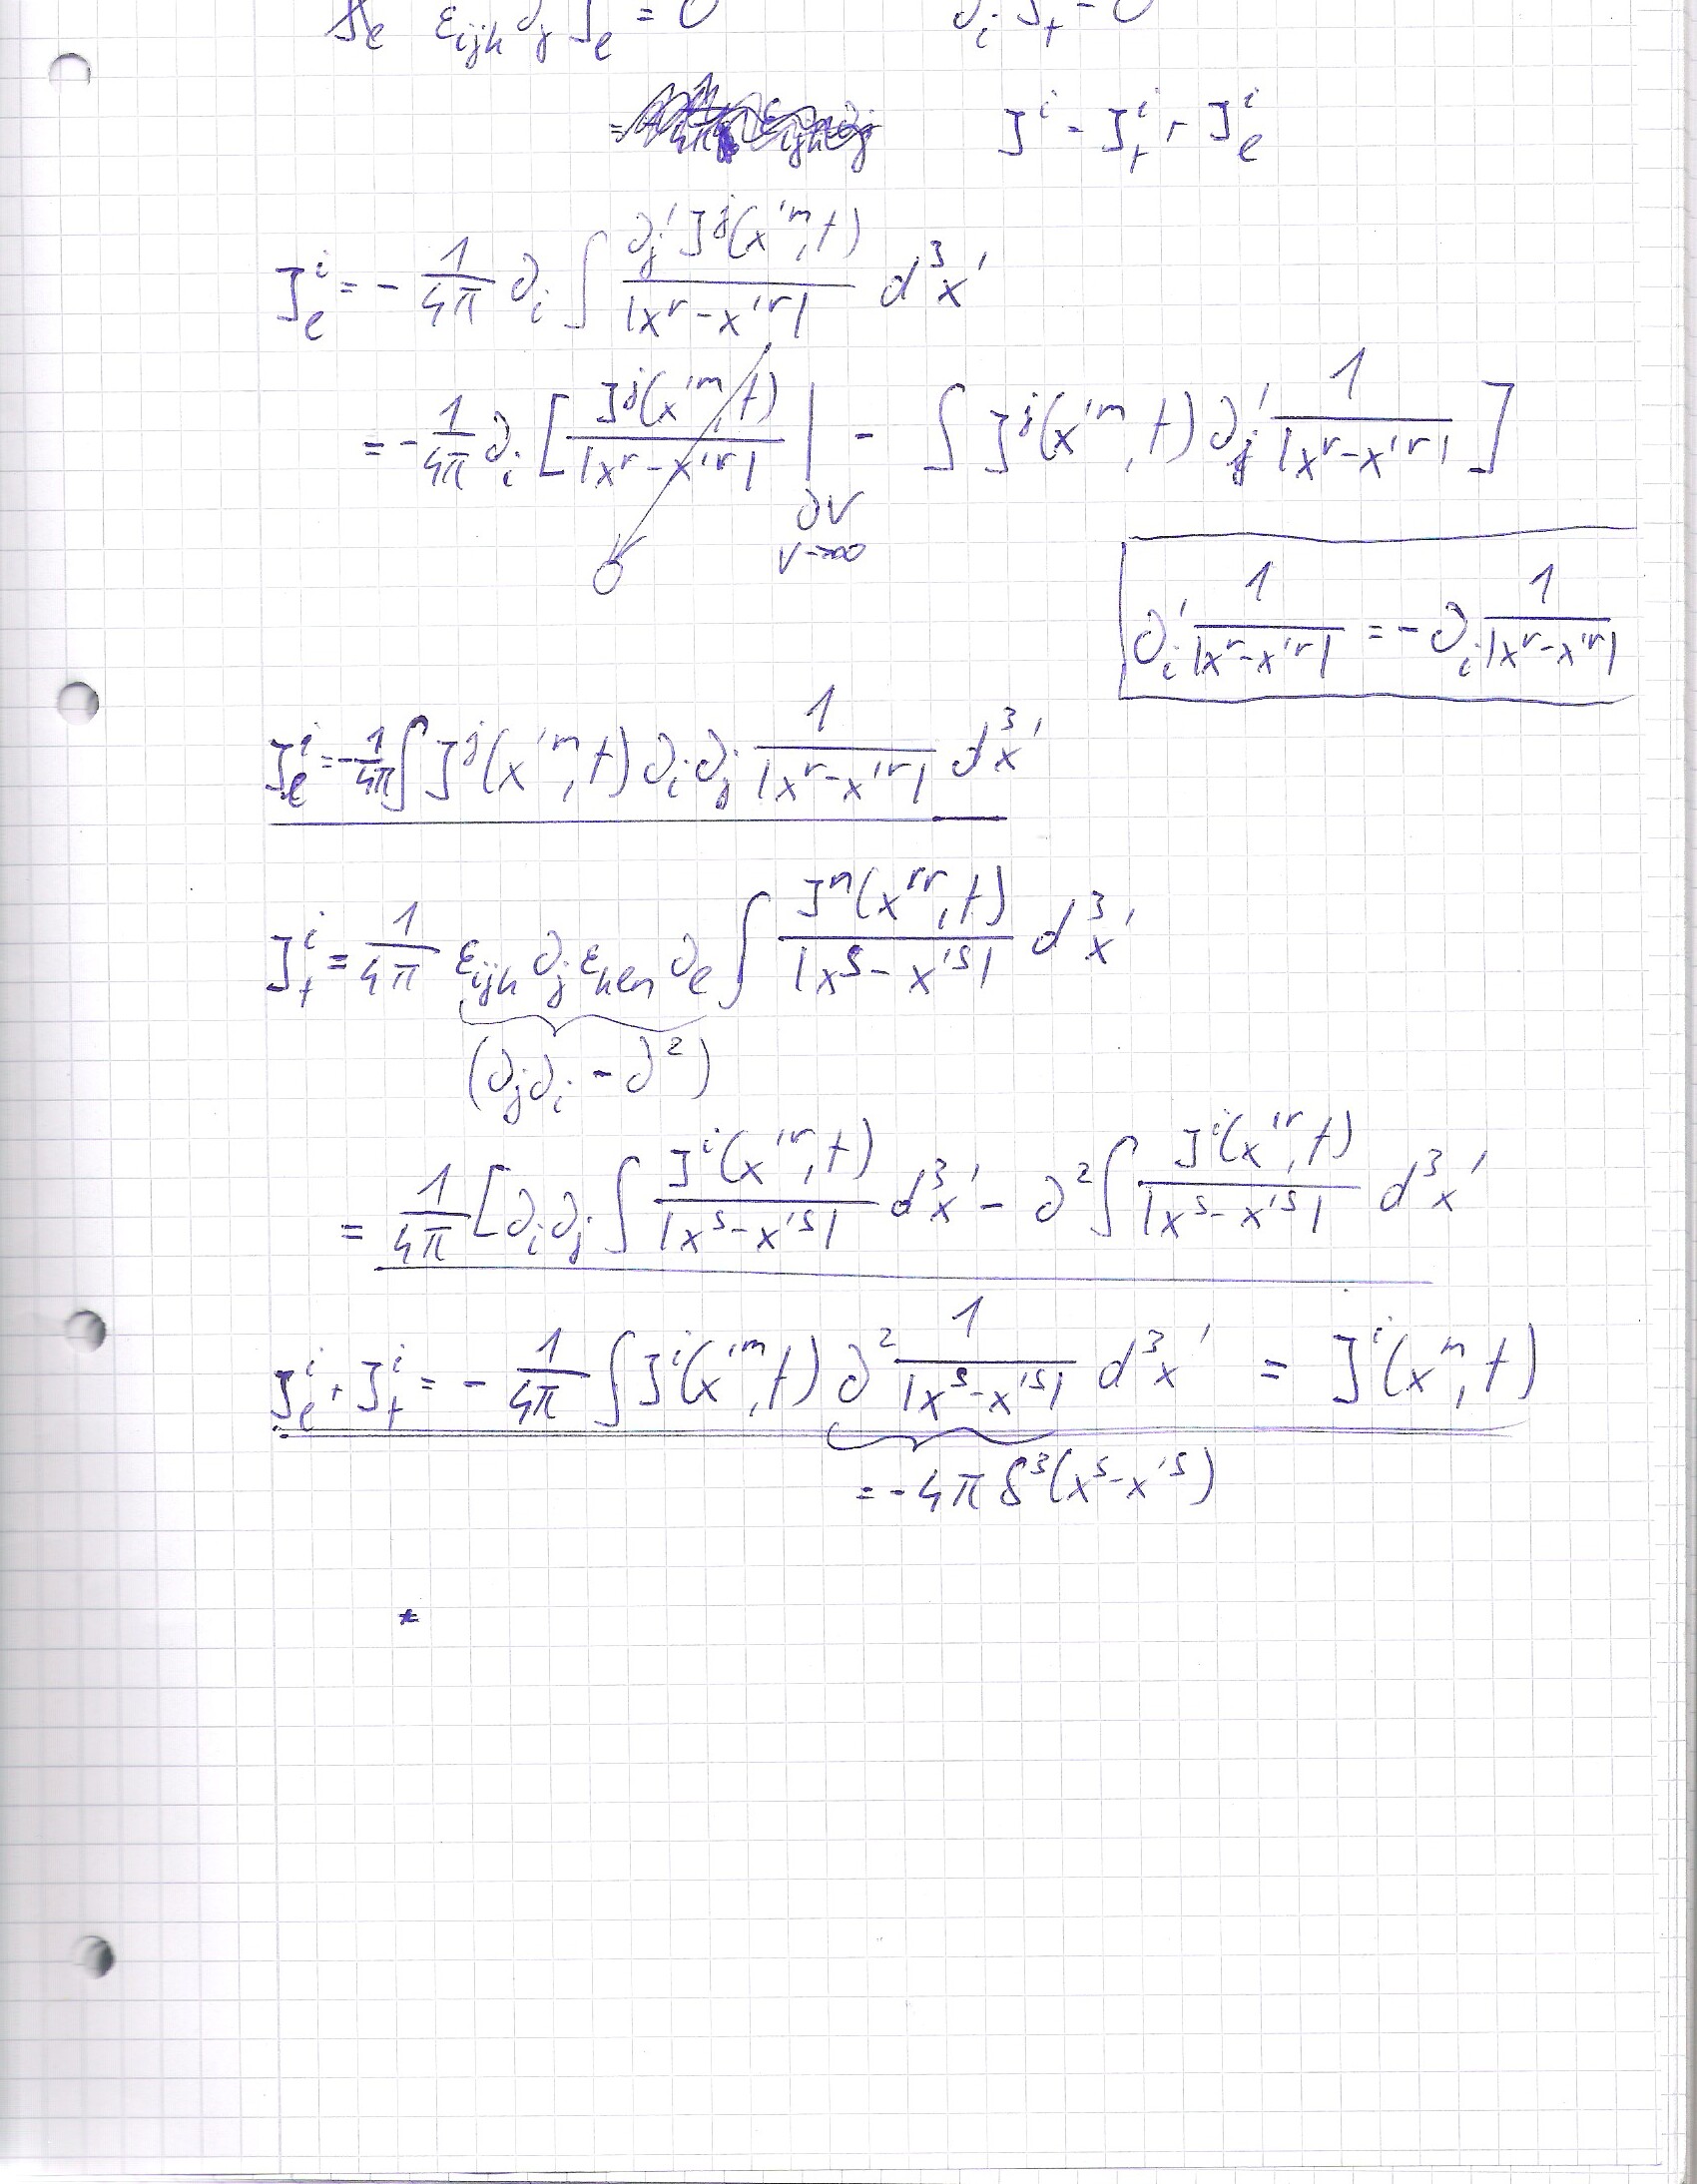 ε_{ijk} ∂_j J_e = 0    ∂_i J_t = 0
J^i = J_t^i + J_e^i
J_e^i = - 1/(4π) ∂_i ∫ ∂_j' J^j(x'^m, t) / |x^r - x'^r| d^3x'
= - 1/(4π) ∂_i [ J^j(x'^m, t) / |x^r - x'^r| |_{∂V, V→∞} - ∫ J^j(x'^m, t) ∂_j' 1/|x^r - x'^r| ]
0
∂_i' 1/|x^r - x'^r| = - ∂_i 1/|x^r - x'^r|
J_e^i = - 1/(4π) ∫ J^j(x'^m, t) ∂_i ∂_j 1/|x^r - x'^r| d^3x'
J_t^i = 1/(4π) ε_{ijk} ∂_j ε_{ken} ∂_e ∫ J^n(x'^r, t) / |x^s - x'^s| d^3x'
(∂_j ∂_i - ∂^2)
= 1/(4π) [ ∂_i ∂_j ∫ J^i(x'^r, t) / |x^s - x'^s| d^3x' - ∂^2 ∫ J^i(x'^r, t) / |x^s - x'^s| d^3x'
J_e^i + J_t^i = - 1/(4π) ∫ J^i(x'^m, t) ∂^2 1/|x^s - x'^s| d^3x' = J^i(x^m, t)
= -4π δ^3(x^s - x'^s)
*